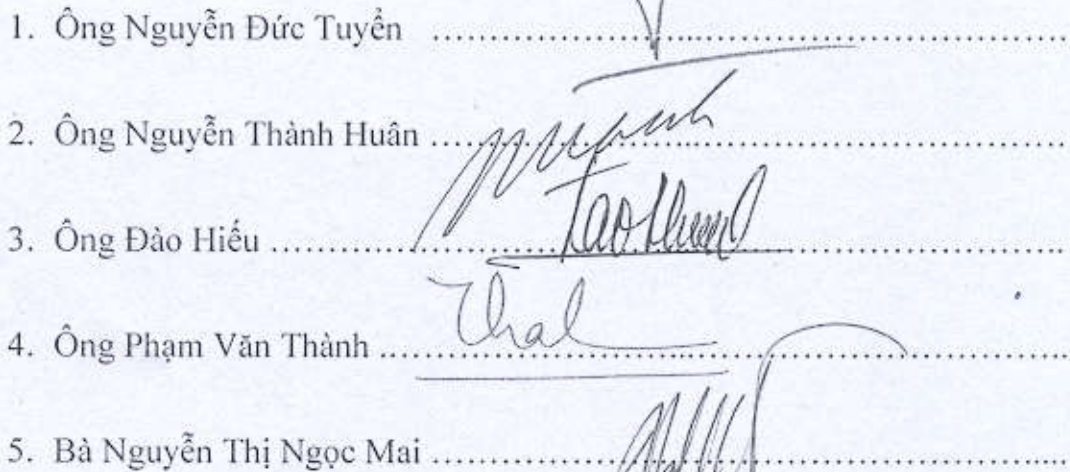 1. Ông Nguyễn Đức Tuyển ....................................................
2. Ông Nguyễn Thành Huân ....................................................
3. Ông Đào Hiếu ....................................................
4. Ông Phạm Văn Thành ....................................................
5. Bà Nguyễn Thị Ngọc Mai ....................................................